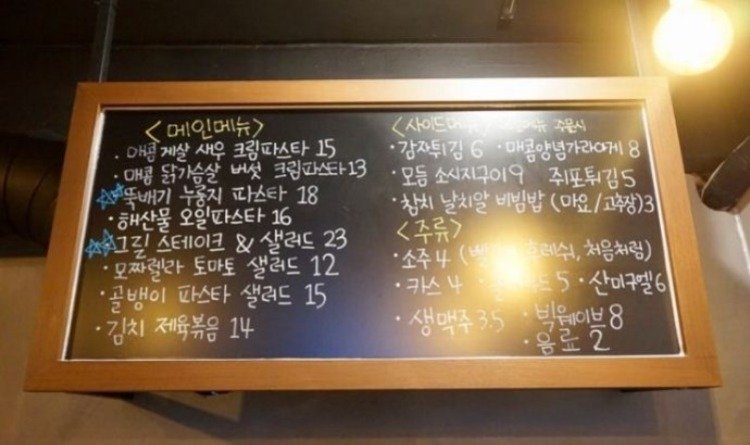 <메인메뉴>
· 매콤 게살 새우 크림파스타 15
· 매콤 닭가슴살 버섯 크림파스타 13
☆ 뚝배기 누룽지 파스타 18
· 해산물 오일파스타 16
☆ 그릴 스테이크 & 샐러드 23
· 모짜렐라 토마토 샐러드 12
· 골뱅이 파스타 샐러드 15
· 김치 제육볶음 14
<사이드메뉴 주문시
· 감자튀김 6 · 매콤양념가라아게 8
· 모듬 소시지구이 9 쥐포튀김 5
· 참치 날치알 비빔밥 (마요/고추장) 3
<주류>
· 소주 4 ( 후레쉬, 처음처럼)
· 카스 4 · 5 · 산미구엘 6
· 생맥주 3.5 · 빅웨이브 8
· 음료 2